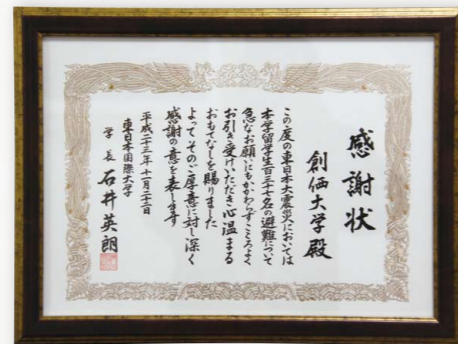 感謝状
創価大学殿
この度の東日本大震災においては
本学留学生百三十七名の避難について
急なお願いにもかかわらずこころよく
お引き受けいただき心温まる
おもてなしを賜りました
よってそのご厚意に対し深く
感謝の意を表します
平成二十三年十一月二十二日
東日本国際大学
学長 石井英朗